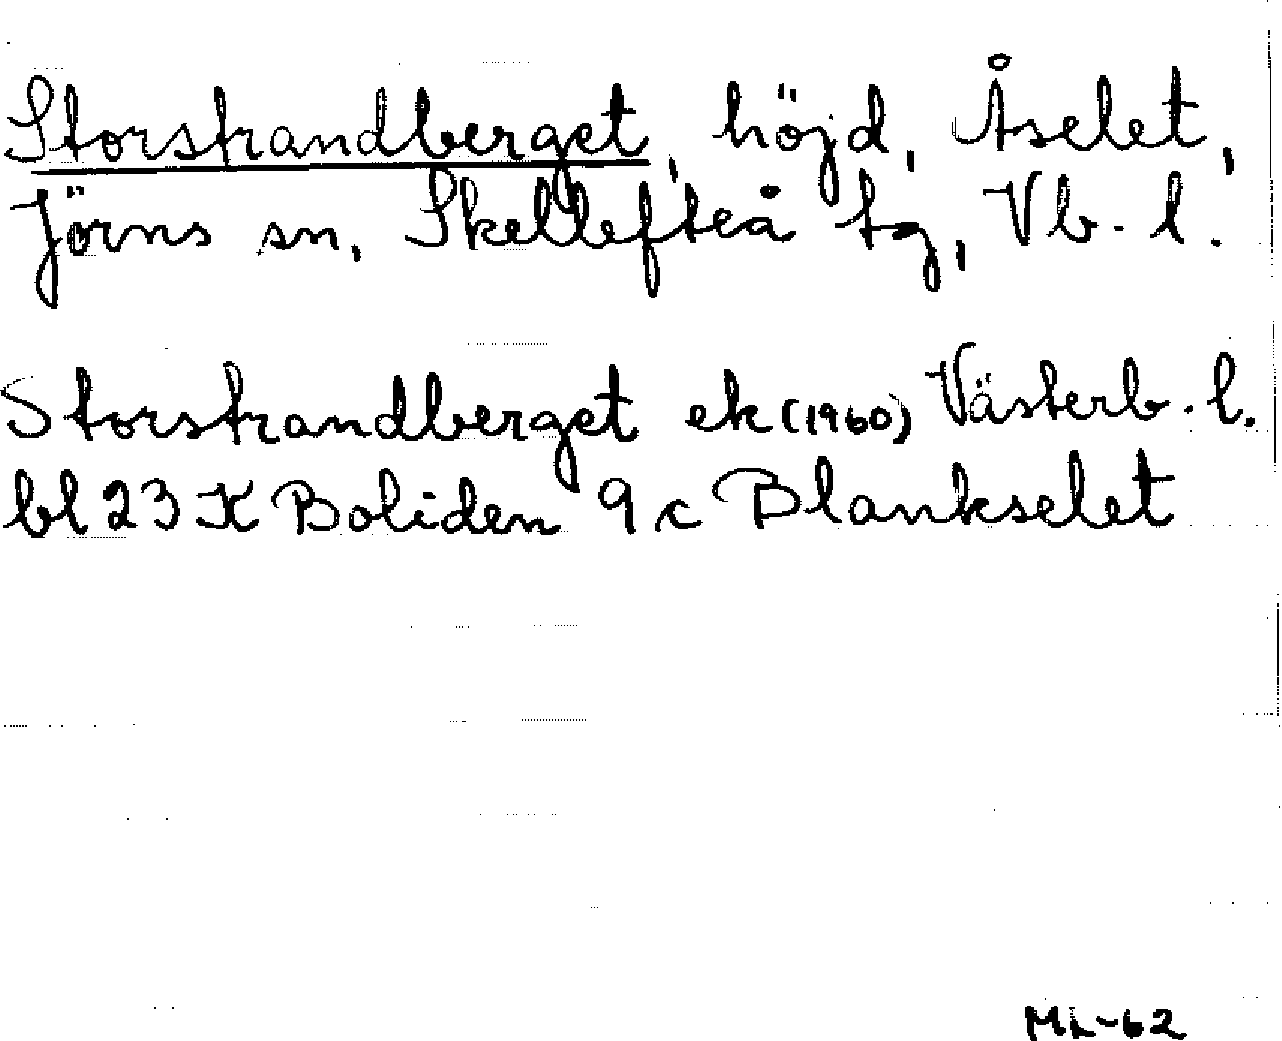 Storstrandberget, höjd, Åselet,
Jörns sn, Skellefteå tg, Vb. l.
Storstrandberget ek (1960) Västerb. l.
bl 23 K Boliden 9 c Blankselet
ML-62